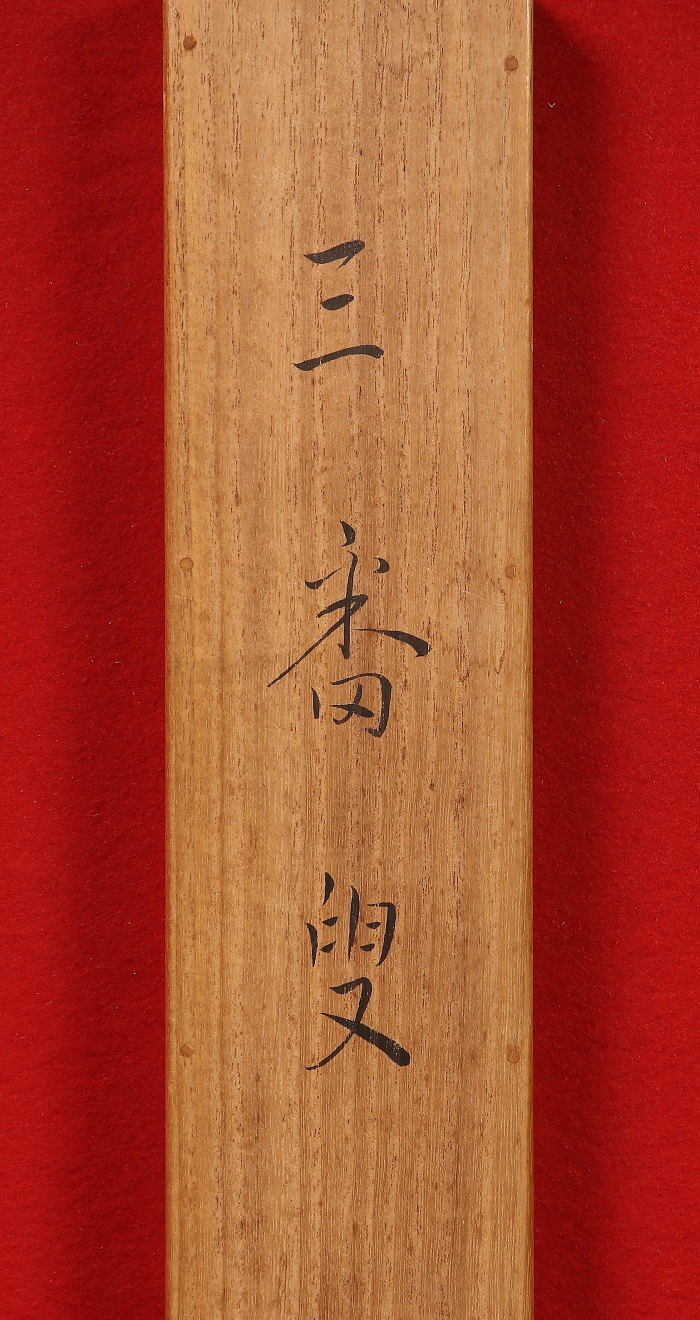 三番叟